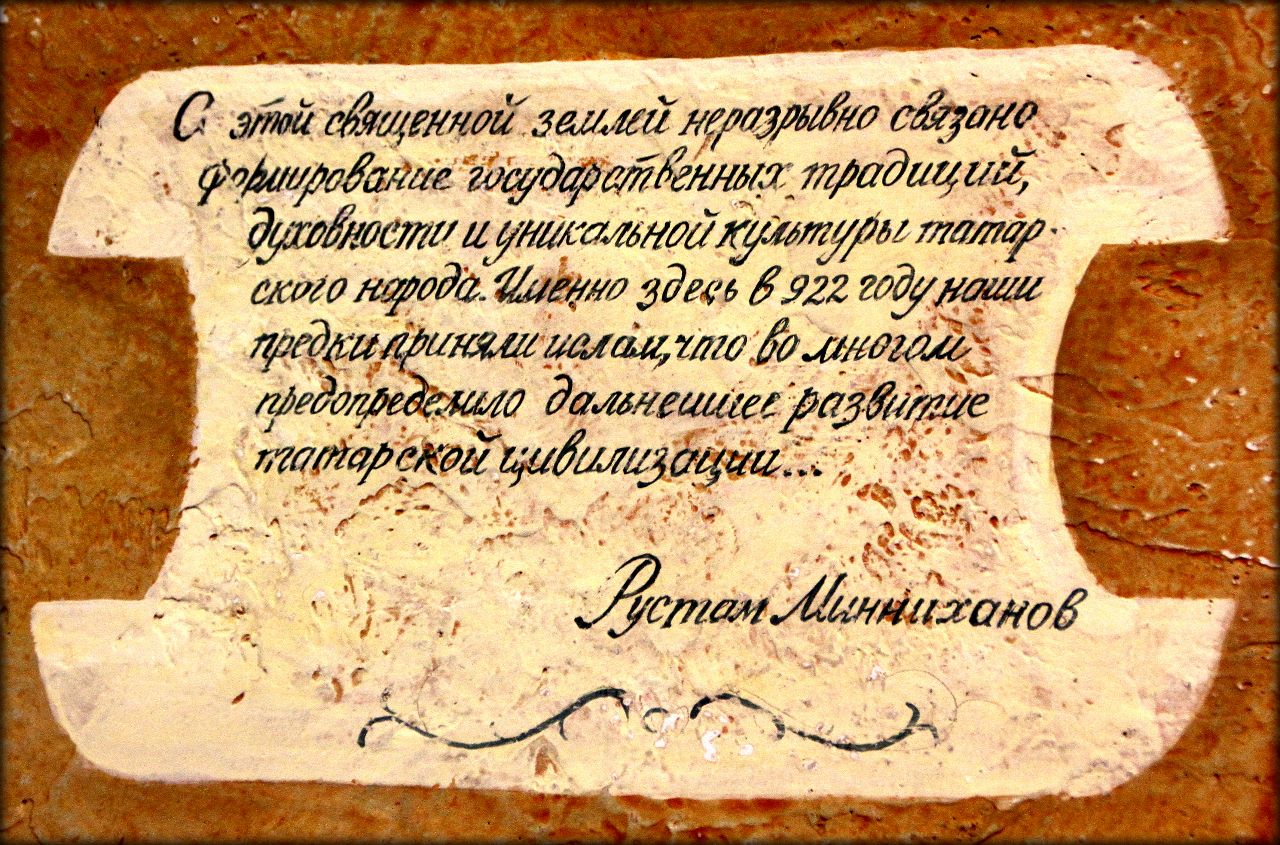 С этой священной землей неразрывно связано
формирование государственных традиций,
духовности и уникальной культуры татар-
ского народа. Именно здесь в 922 году наши
предки приняли ислам, что во многом
предопределило дальнейшее развитие
татарской цивилизации...
Рустам Минниханов